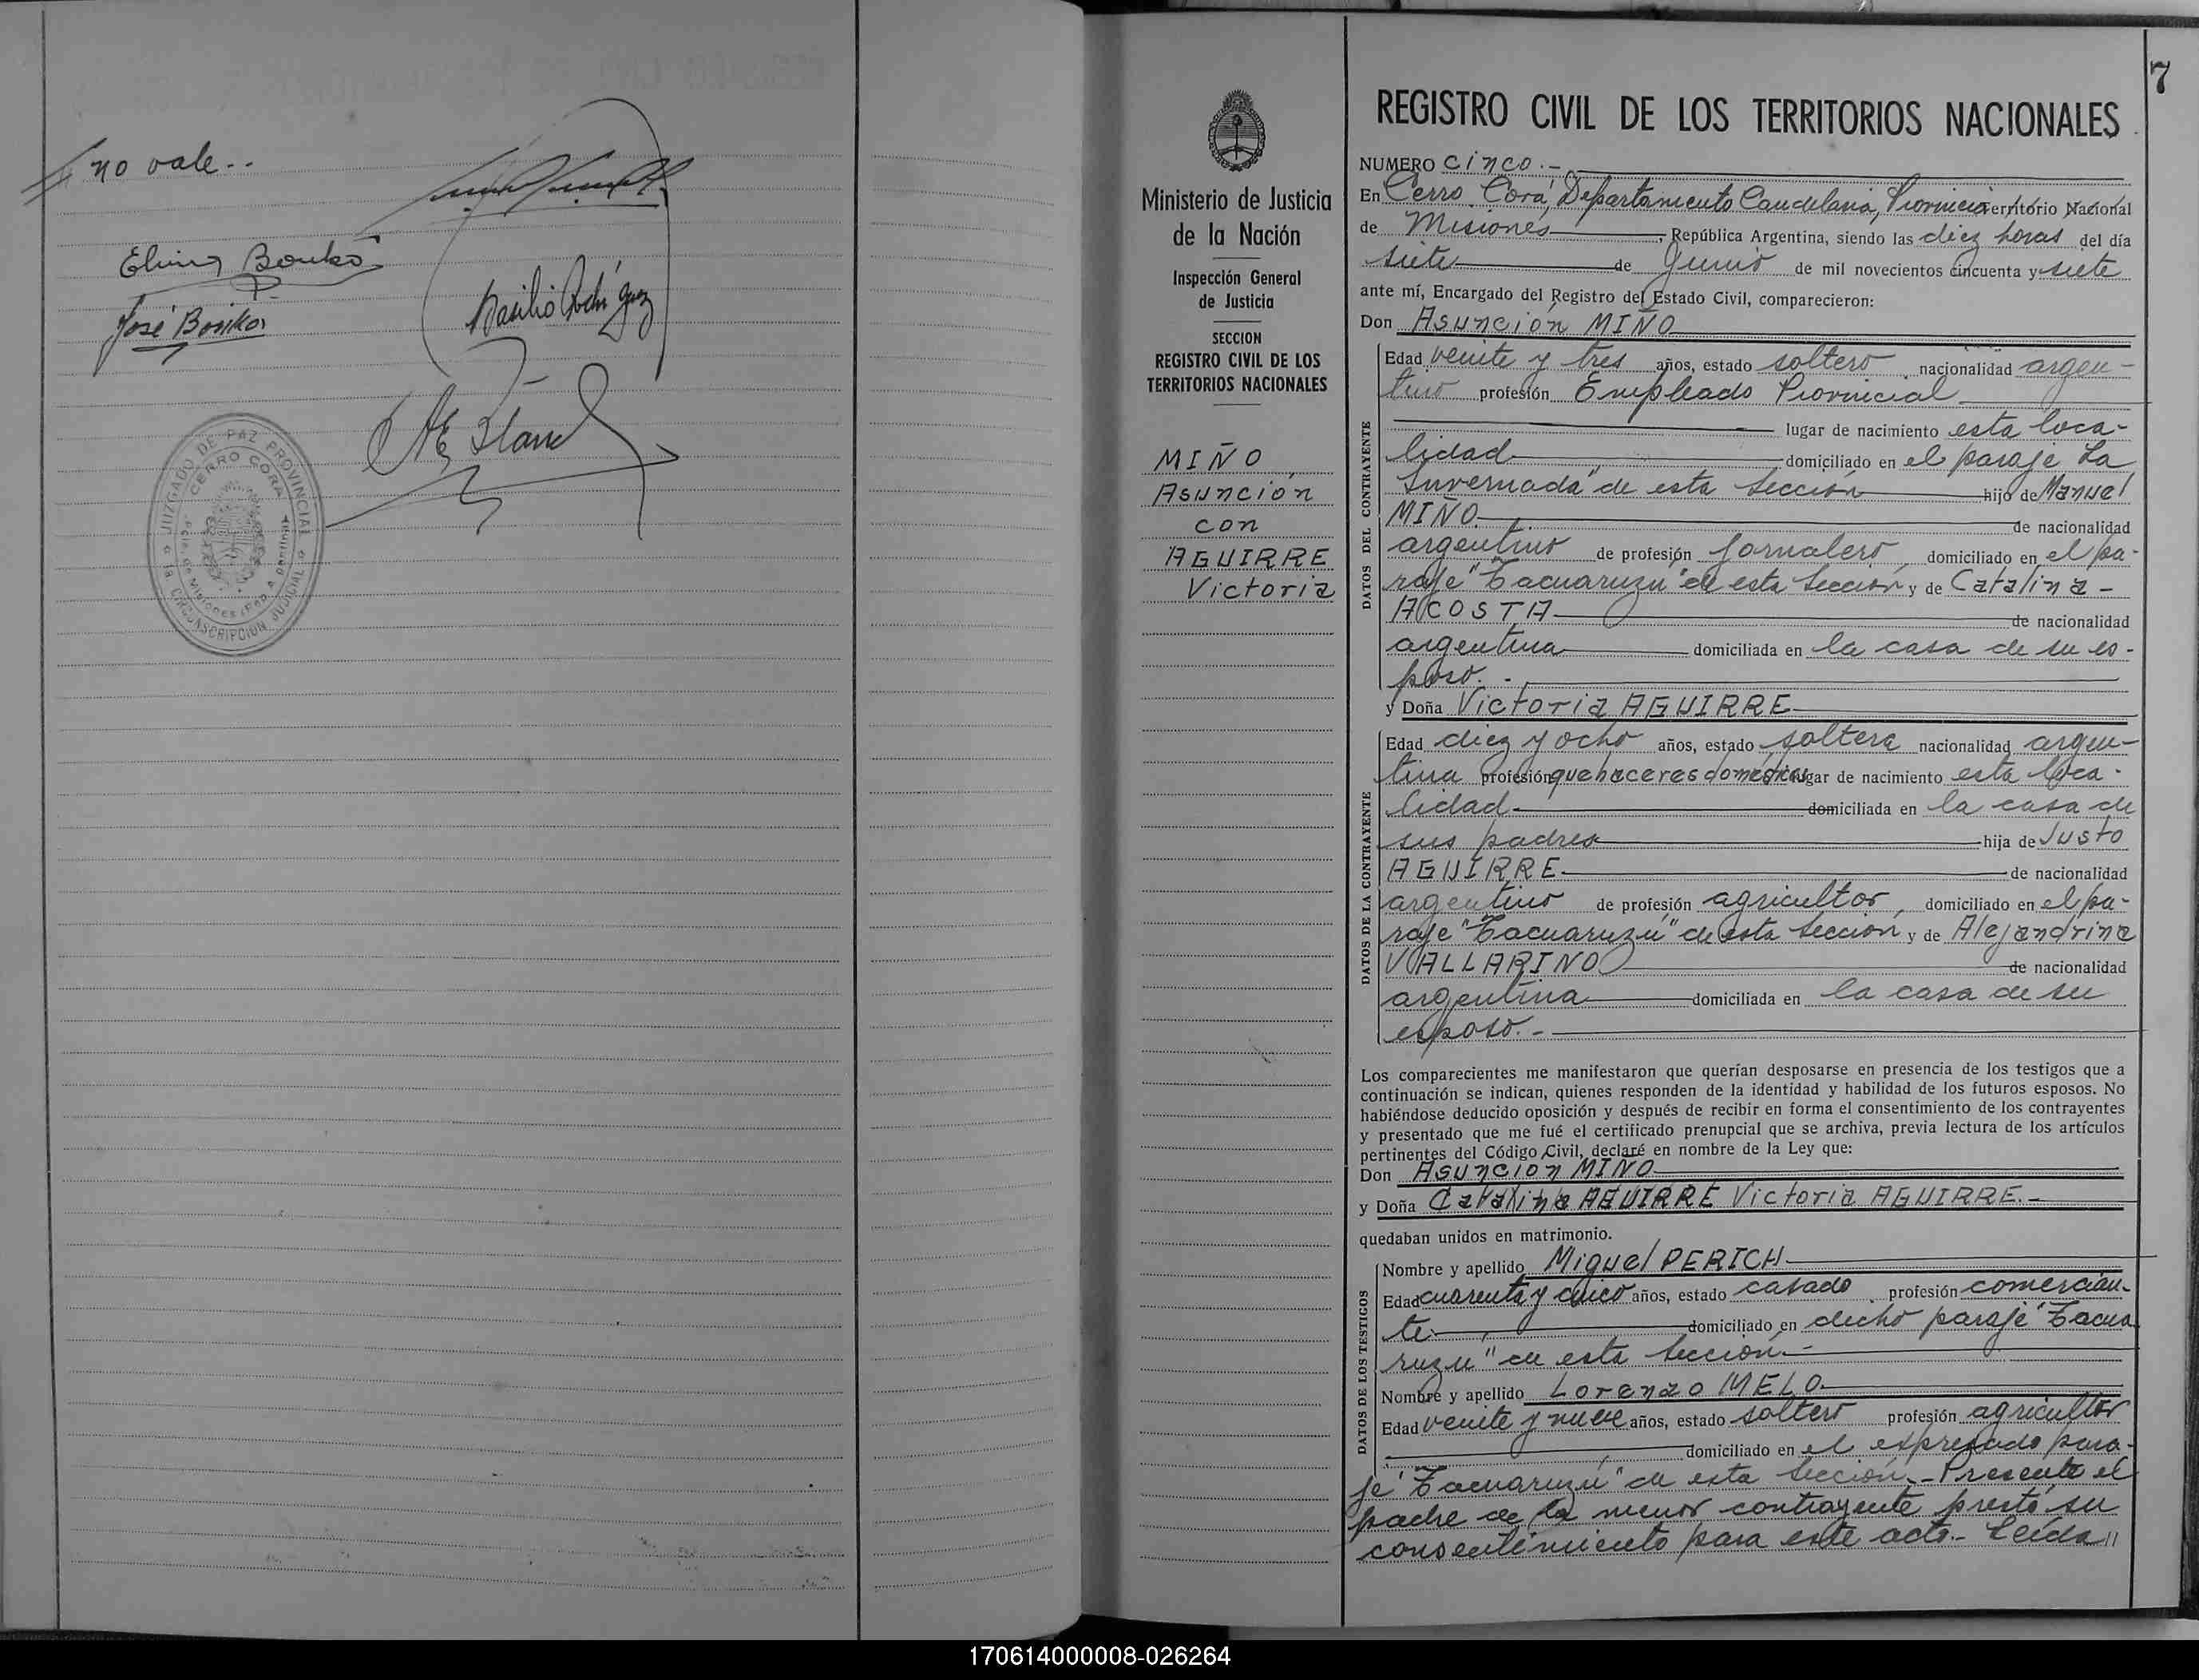 no vale..
Elina Bonko
José Bosiko
Basilio Rodríguez
JUZGADO DE PAZ PROVINCIAL
CERRO CORA
Pcia. de Misiones (Rep. Argentina)
1a CIRCUNSCRIPCION JUDICIAL
Ministerio de Justicia
de la Nación
Inspección General
de Justicia
SECCION
REGISTRO CIVIL DE LOS
TERRITORIOS NACIONALES
MIÑO
Asunción
con
AGUIRRE
Victoria
7
REGISTRO CIVIL DE LOS TERRITORIOS NACIONALES
NUMERO cinco.-
En Cerro Corá, Departamento Candelaria, Provincia Territorio Nacional
de Misiones, República Argentina, siendo las diez horas del día
siete de Junio de mil novecientos cincuenta y siete
ante mí, Encargado del Registro del Estado Civil, comparecieron:
Don Asunción MIÑO
DATOS DEL CONTRAYENTE
Edad veinte y tres años, estado soltero nacionalidad argen-
tino profesión Empleado Provincial
lugar de nacimiento esta loca-
lidad domiciliado en el paraje La
Invernada" de esta Sección hijo de Manuel
MIÑO de nacionalidad
argentino de profesión jornalero, domiciliado en el pa-
raje "Tacuaruzú" de esta Sección y de Catalina -
ACOSTA de nacionalidad
argentina domiciliada en la casa de su es-
poso. -
y Doña Victoria AGUIRRE
DATOS DE LA CONTRAYENTE
Edad diez y ocho años, estado soltera nacionalidad argen-
tina profesión quehaceres domésticos lugar de nacimiento esta loca-
lidad domiciliada en la casa de
sus padres hija de Justo
AGUIRRE de nacionalidad
argentino de profesión agricultor, domiciliado en el pa-
raje "Tacuaruzú" de esta Sección y de Alejandrina
VALLARINO de nacionalidad
argentina domiciliada en la casa de su
esposo.-
Los comparecientes me manifestaron que querían desposarse en presencia de los testigos que a
continuación se indican, quienes responden de la identidad y habilidad de los futuros esposos. No
habiéndose deducido oposición y después de recibir en forma el consentimiento de los contrayentes
y presentado que me fué el certificado prenupcial que se archiva, previa lectura de los artículos
pertinentes del Código Civil, declaré en nombre de la Ley que:
Don Asunción MIÑO
y Doña Catalina AGUIRRE Victoria AGUIRRE.-
quedaban unidos en matrimonio.
DATOS DE LOS TESTIGOS
Nombre y apellido Miguel PERICH
Edad cuarenta y cinco años, estado casado profesión comercian-
te domiciliado en dicho paraje "Tacua
ruzú" de esta Sección.-
Nombre y apellido Lorenzo MELO
Edad veinte y nueve años, estado soltero profesión agricultor
domiciliado en el expresado para-
je "Tacuaruzú" de esta Sección.- Presente el
padre de la menor contrayente prestó su
consentimiento para este acto.- Leída //
170614000008-026264